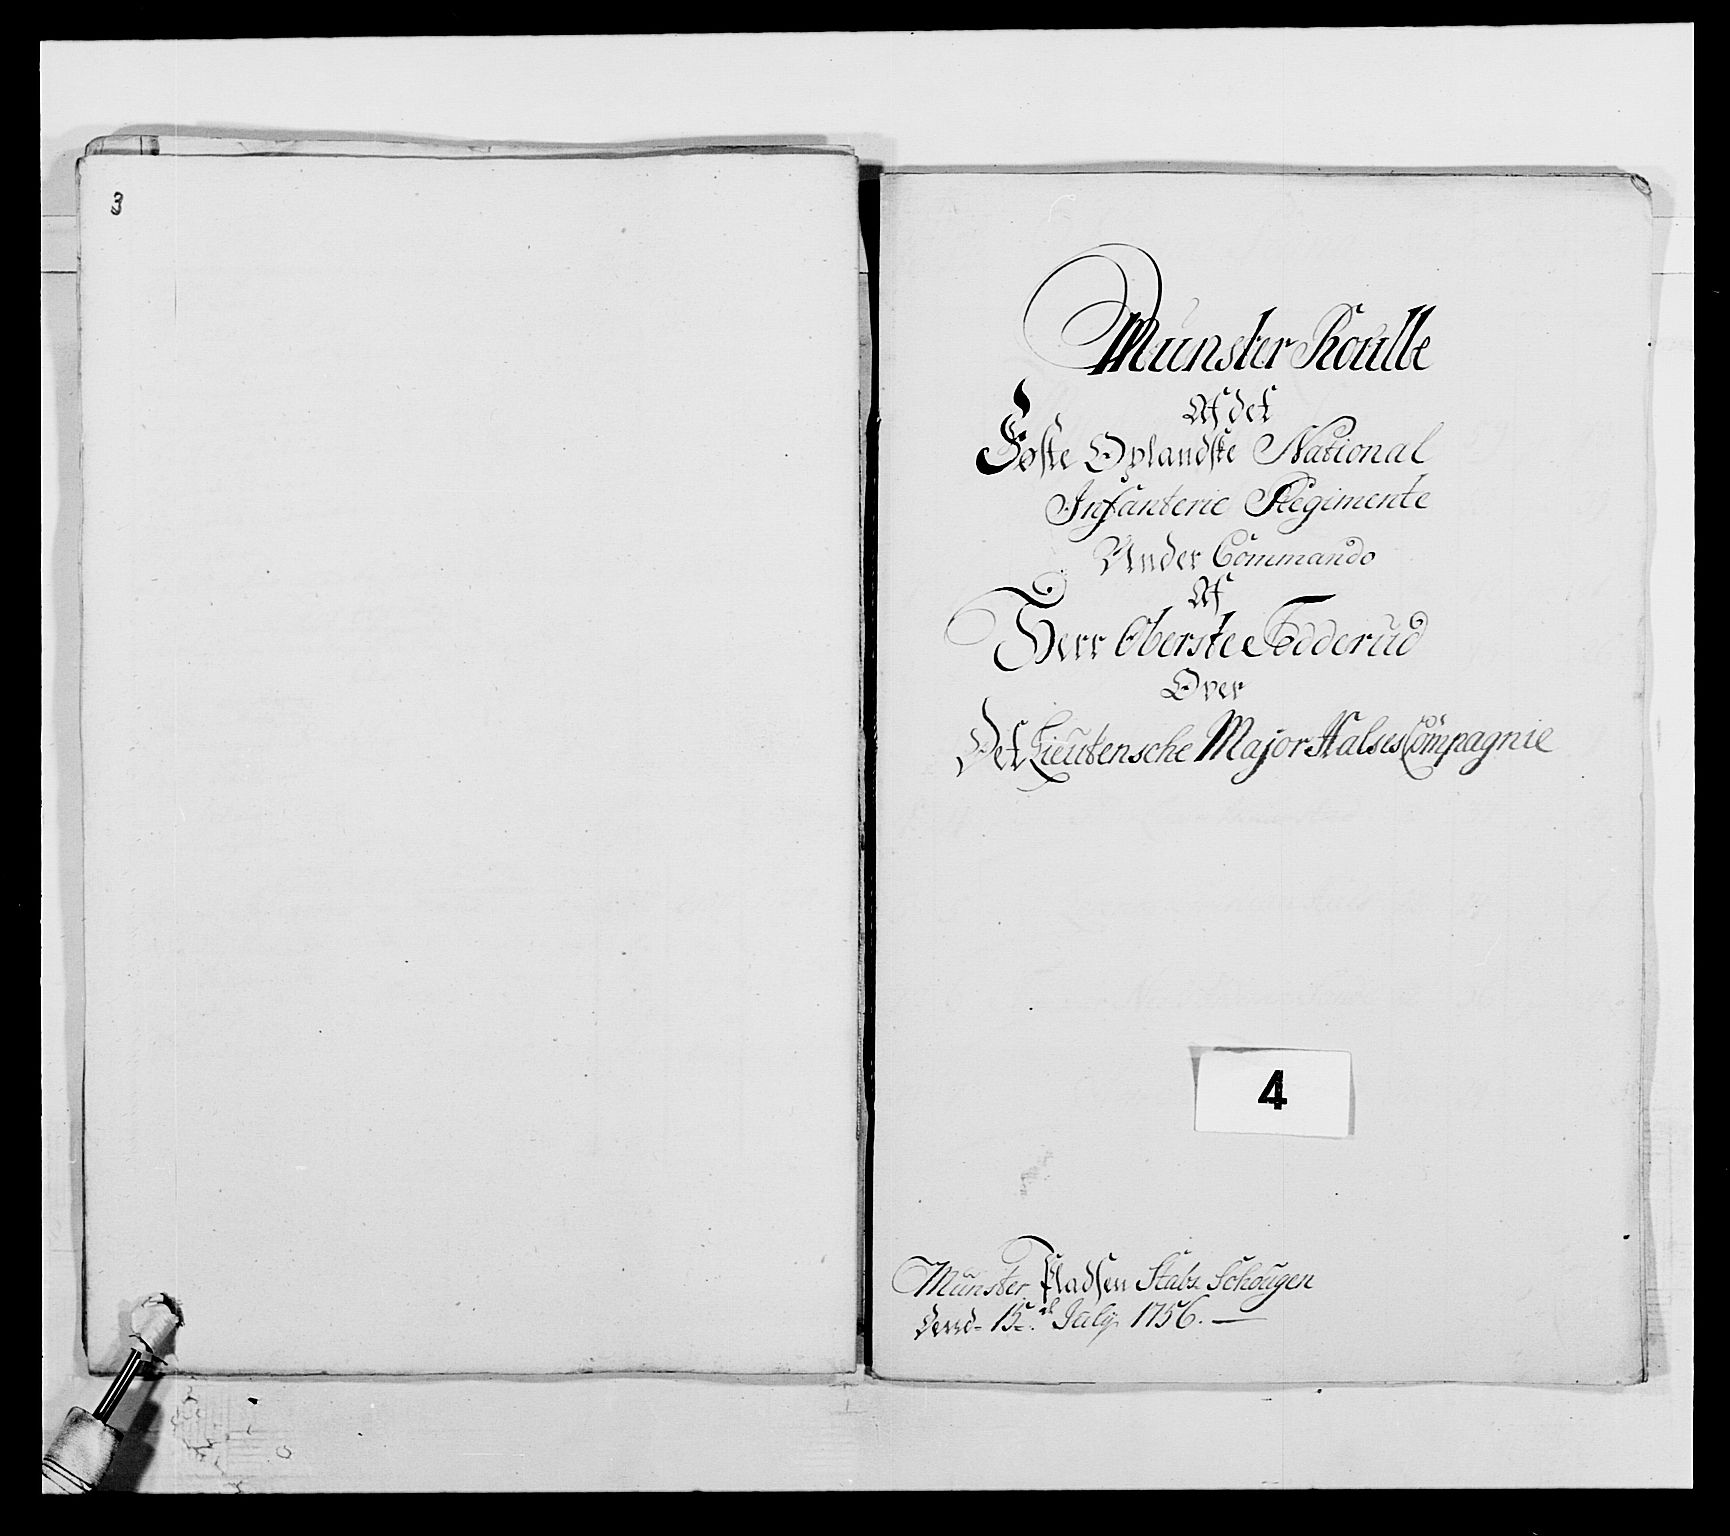 3
Munster Roulle
Af det
Føste Oplandske National
Infanterie Regimente
Under Commando
Af
Herr Oberste Fødderud
Over
Det Lieutensche Major Halses Compagnie
4
Munster Pladsen Stabz Schougen
Dend 15. July 1756.